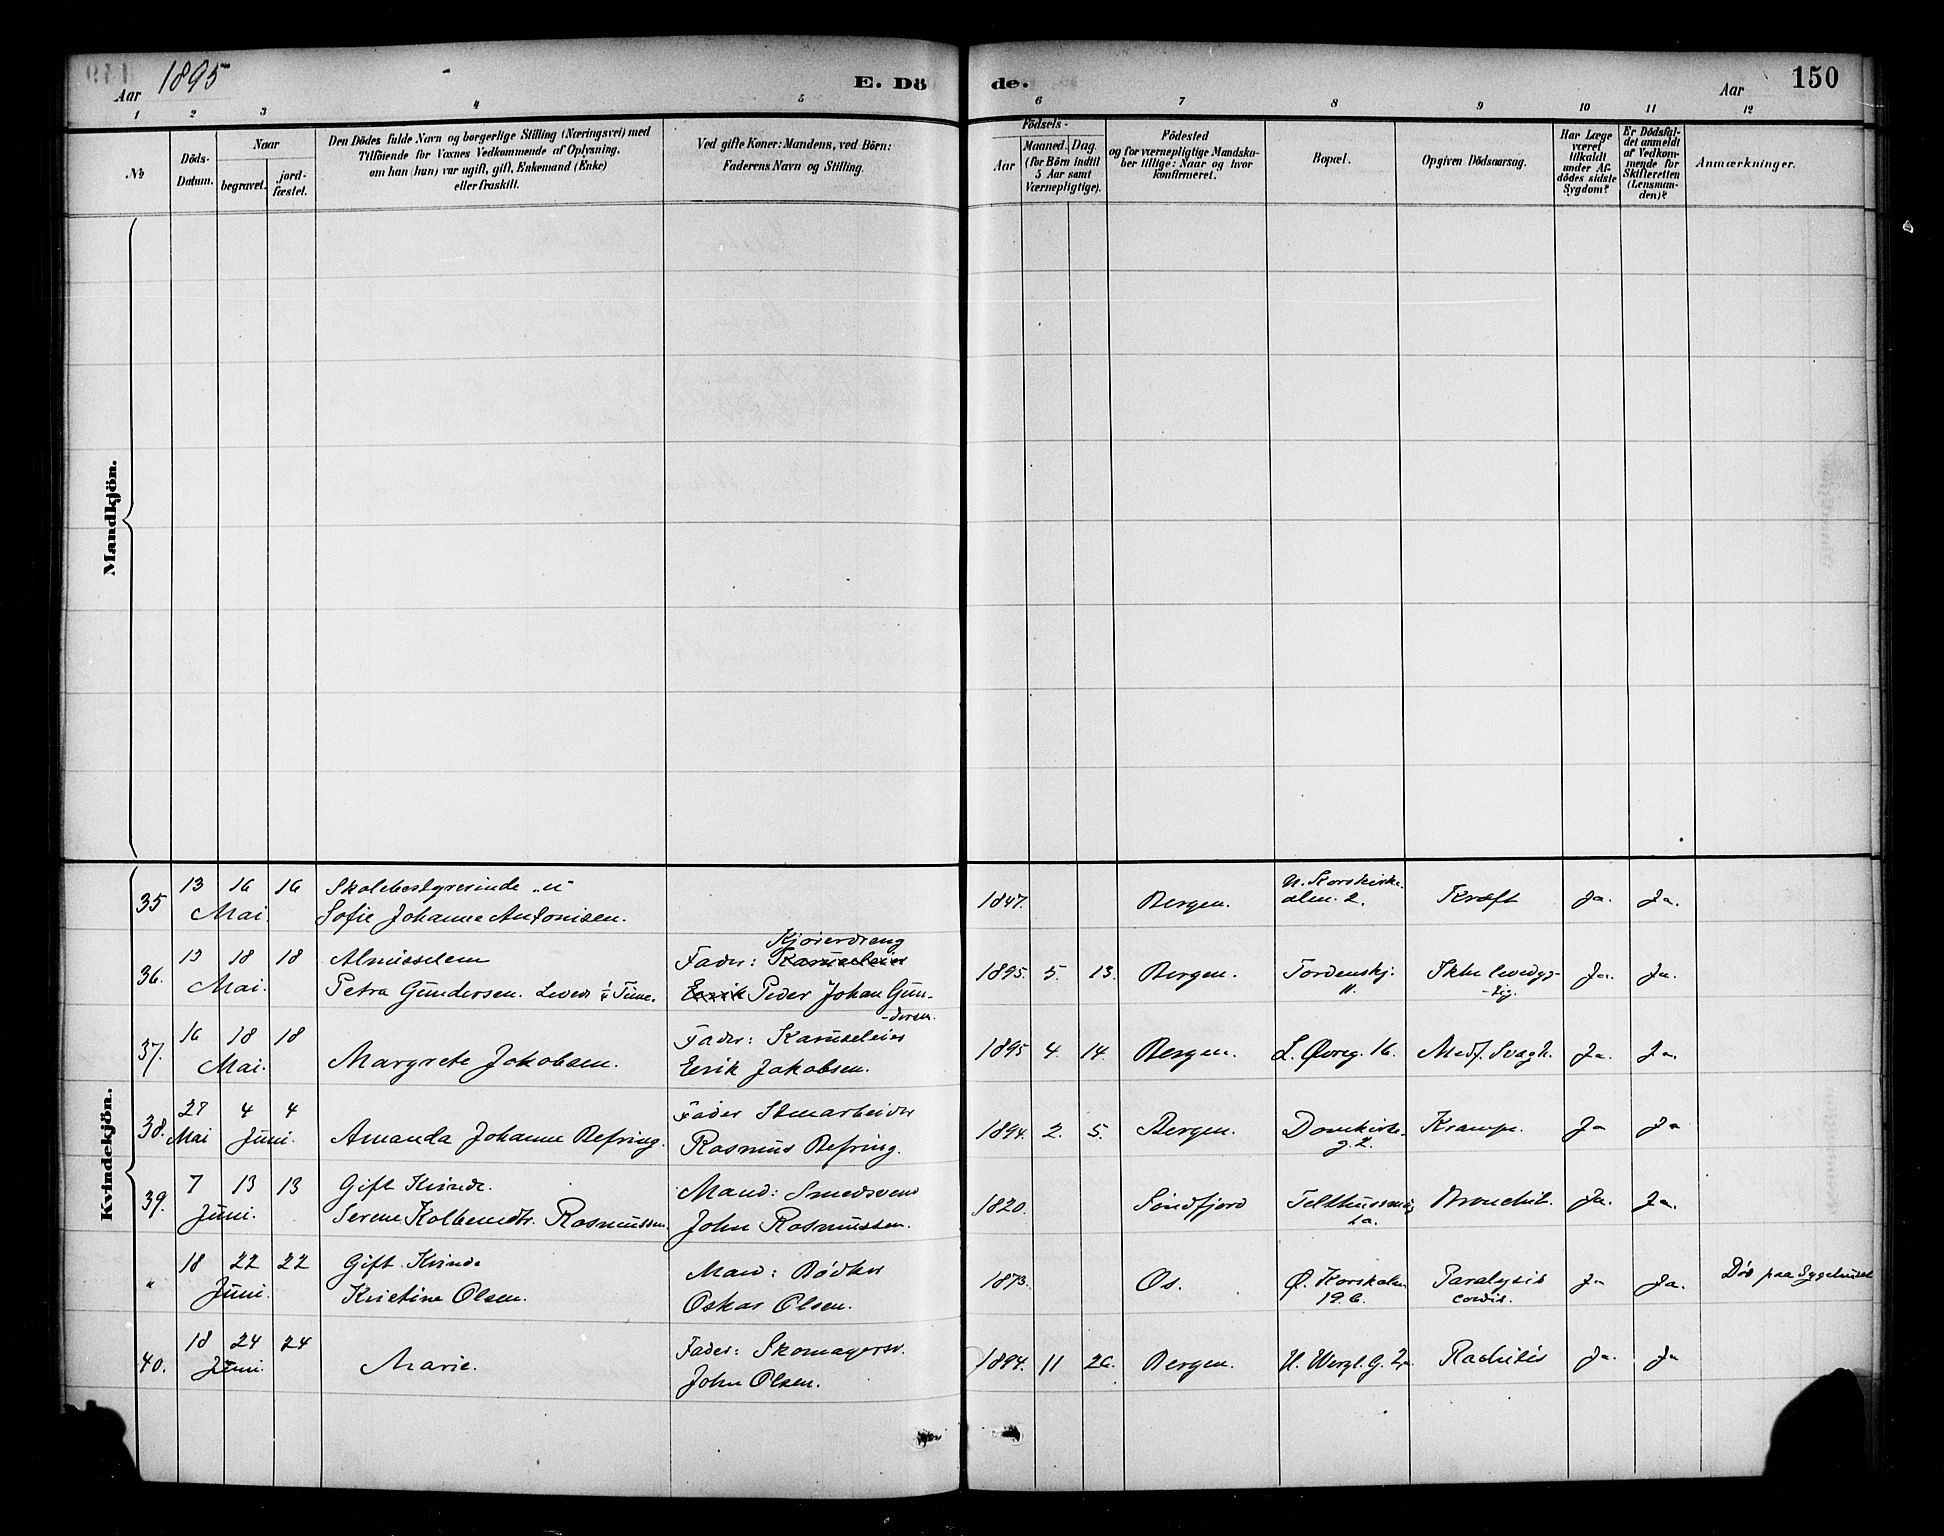 Aar 1895
E. Döde.
Aar
150
1 2 3 4 5 6 7 8 9 10 11 12
№
Döds-Datum.
Naar
begravet.
jord-fæstet.
Den Dödes fulde Navn og borgerlige Stilling (Næringsvei) med
Tilföiende for Voxnes Vedkommende af Oplysning,
om han (hun) var ugift, gift, Enkemand (Enke)
eller fraskilt.
Ved gifte Koner: Mandens, ved Börn:
Faderens Navn og Stilling.
Födsels-
Aar
Maaned. Dag.
(for Börn indtil
5 Aar samt
Værnepligtige).
Födested
og for værnepligtige Mandska-
ber tillige: Naar og hvor
konfirmeret.
Bopæl.
Opgiven Dödsaarsag.
Har Læge
været
tilkaldt
under Af-
dödes sidste
Sygdom?
Er Dödsfal-
det anmeldt
af Vedkom-
mende for
Skifteretten
(Lensman-
den)?
Anmærkninger.
Mandkjön.
Kvindekjön.
35 13 16 16 Mai. Skolebestyrerinde „u“
Sofie Johanne Antonisen.
1847. Bergen. N. Korskirke-
alm. 2. Kræft Ja. Ja.
36. 13 18 18 Mai.
Petra Gundersen. Levede Time.
Kjørerdreng
Fader: Karuseleier
Eerik Peder Johan Gun-
-dersen.
1895. 5. 13. Bergen. Tordenskj.
11. Ikke levedyg-
-tig. Ja. Ja.
37. 16 18 18 Mai. Margrete Jakobsen.
Fader: Karuseleier
Eerik Jakobsen.
1895 4. 14. Bergen. L. Øvreg. 16. Medf. Svagh. Ja. Ja.
38. 27 Mai 4 4 Juni. Amanda Johanne Refring.
Fader Stenarbeider
Rasmus Refring.
1894. 2. 5. Bergen. Domkirke-
g. Krampe. Ja Ja
39. 7 13 13 Juni. Gift Kvinde.
Serene Kolbensdtr. Rasmussen.
Mand: Smedsvend
John Rasmussen.
1820. Söndfjord Bronchit. Ja. Ja.
" 18 22 22 Juni. Gift Kvinde
Kristine Olsen.
Mand: Bödker
Oskar Olsen.
1873. Os. Ø. Korskalm.
19 b. Paralysis
cordis. Ja Ja. Död paa Sygehuset
40. 18 24 24 Juni. Marie.
Fader: Skomagersv.
John Olsen.
1894. 11 26. Bergen. H. Wergl. G. Rachitis Ja. Ja